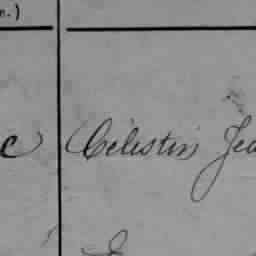 e.)
c Célestin Jea